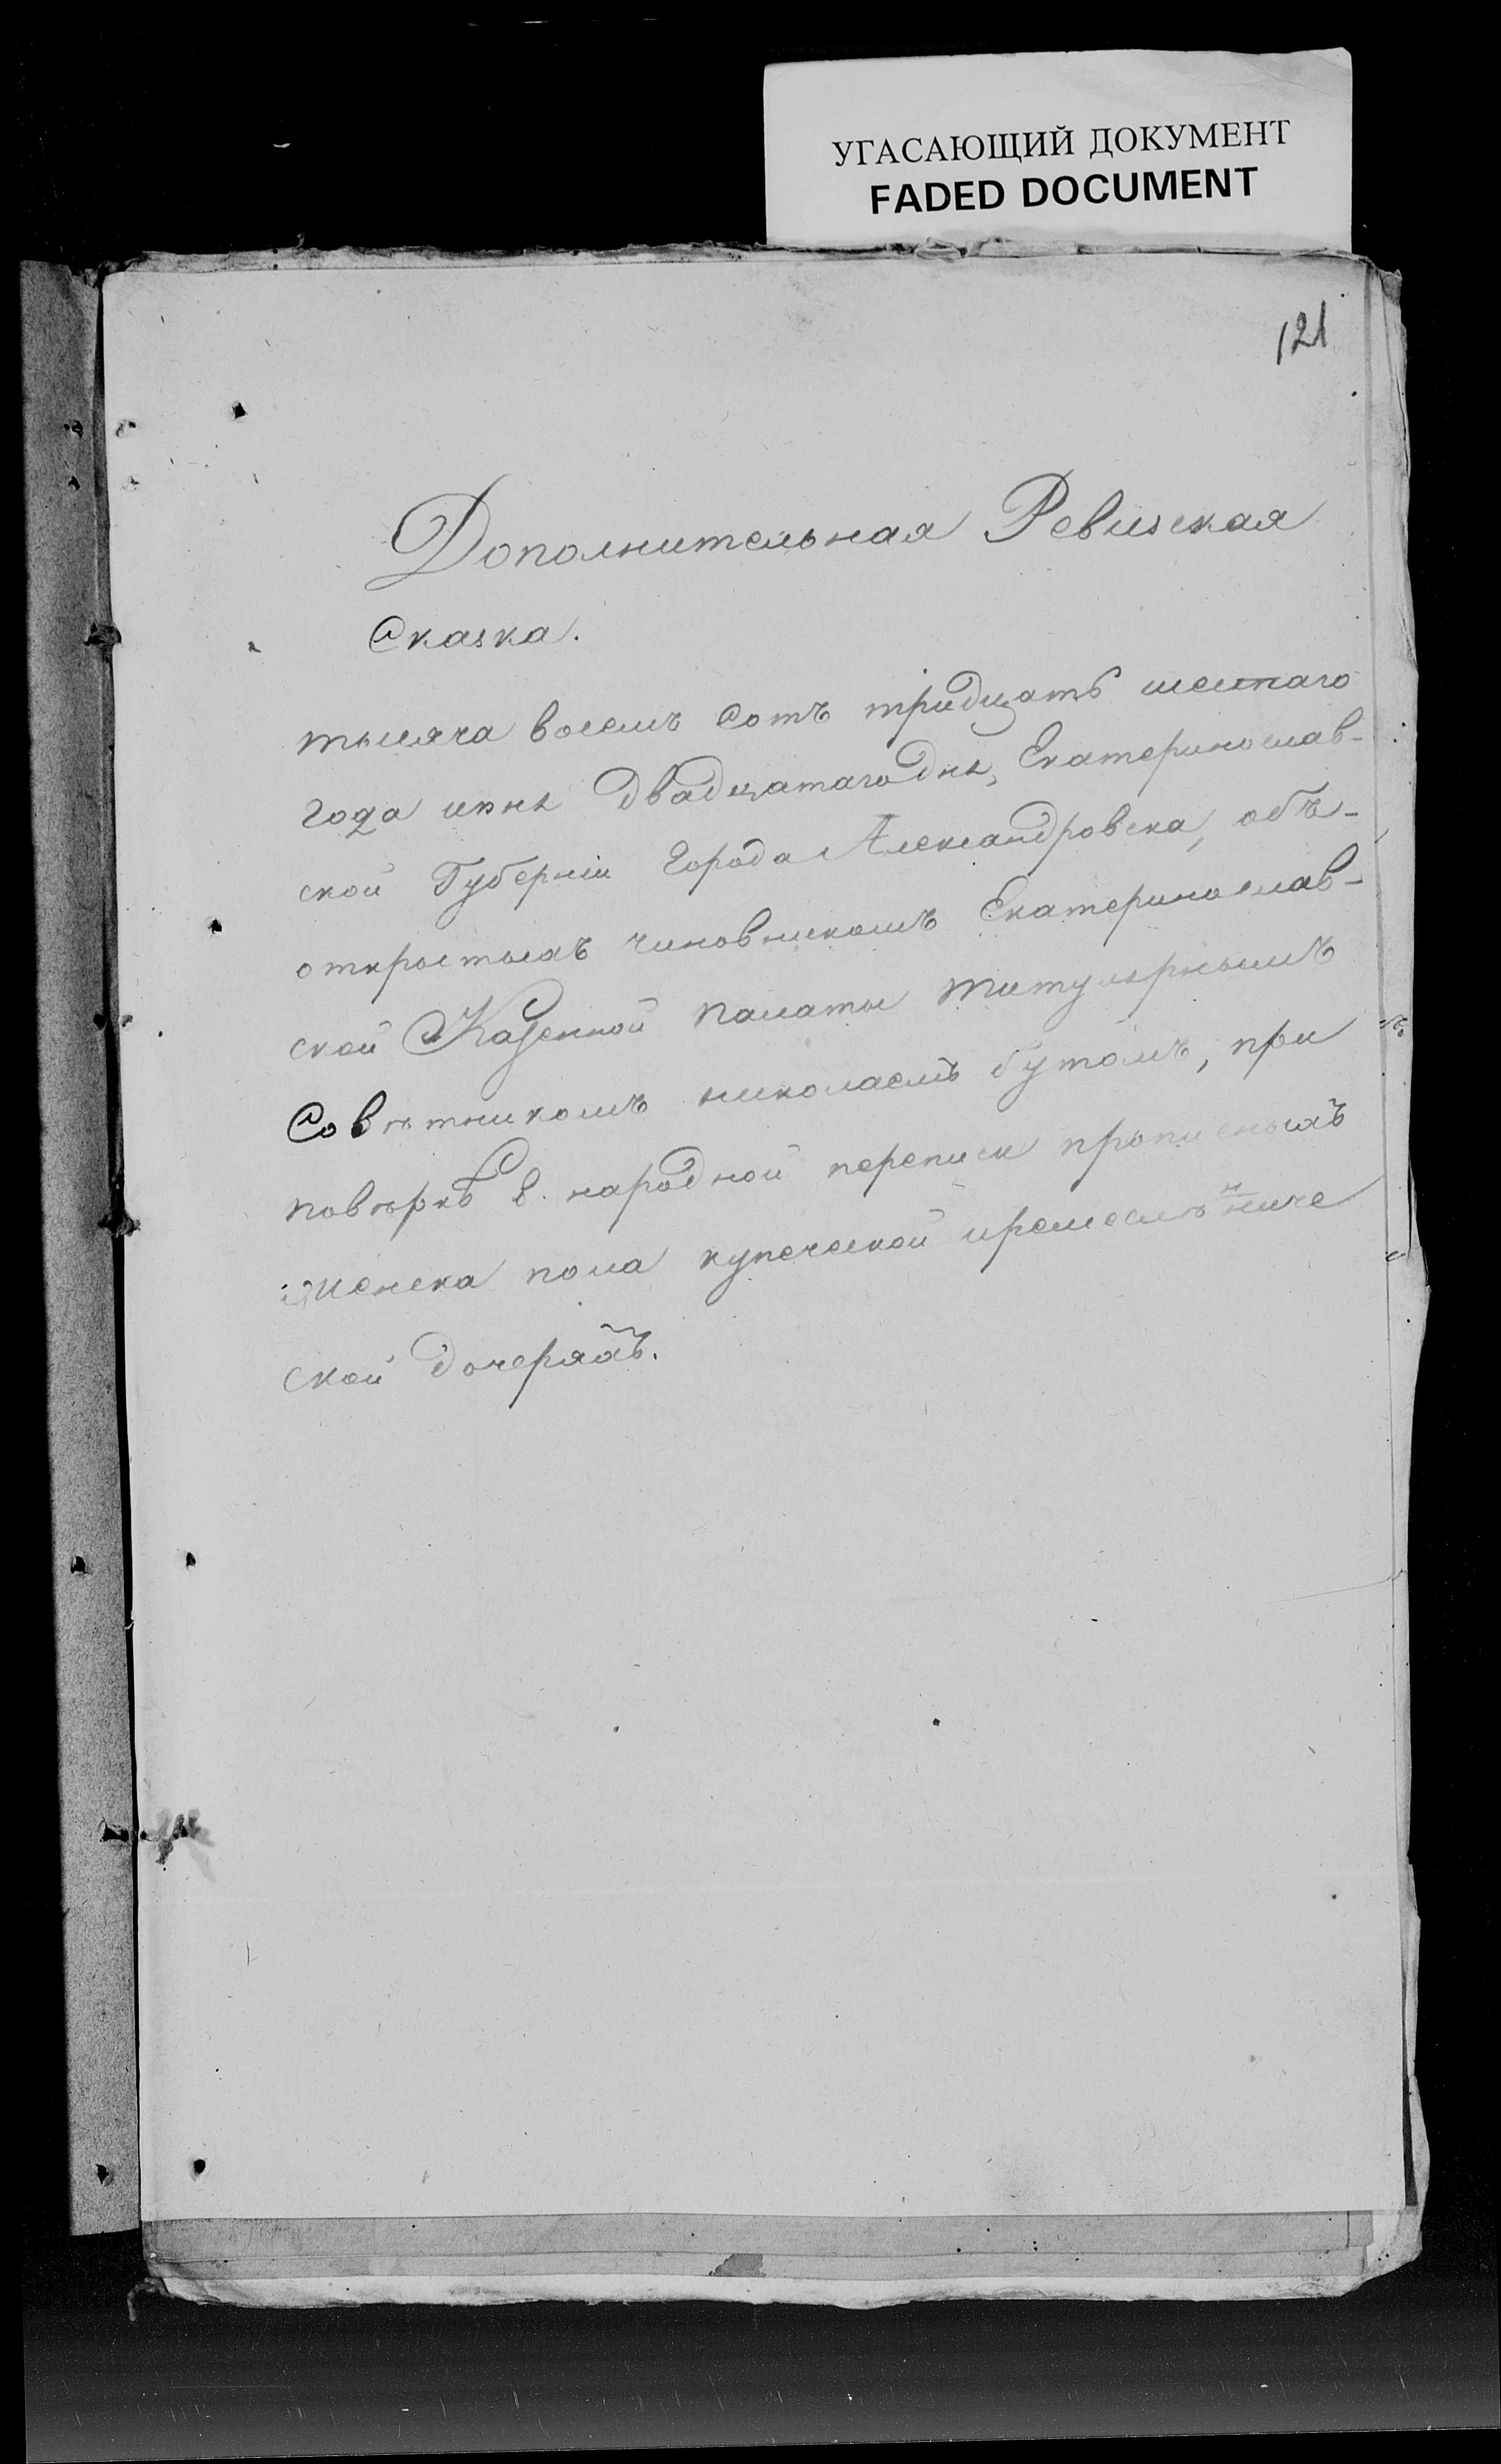 УГАСАЮЩИЙ ДОКУМЕНТ
FADED DOCUMENT
121
Дополнительная Ревизская
Сказка.
тысяча восемъ сотъ тридцать шестаго
года июня двадцатаго дня, Екатеринослав-
ской Губерніи Города Александровска, объ-
открытыхъ чиновникомъ Екатеринослав-
ской Казенной палаты титулярнымъ
Советникомъ николаемъ бутомъ, при
поверкѣ 8. народной переписи прописныхъ
женска пола купеческой иремеслѣнниче
ской дочеряхъ.